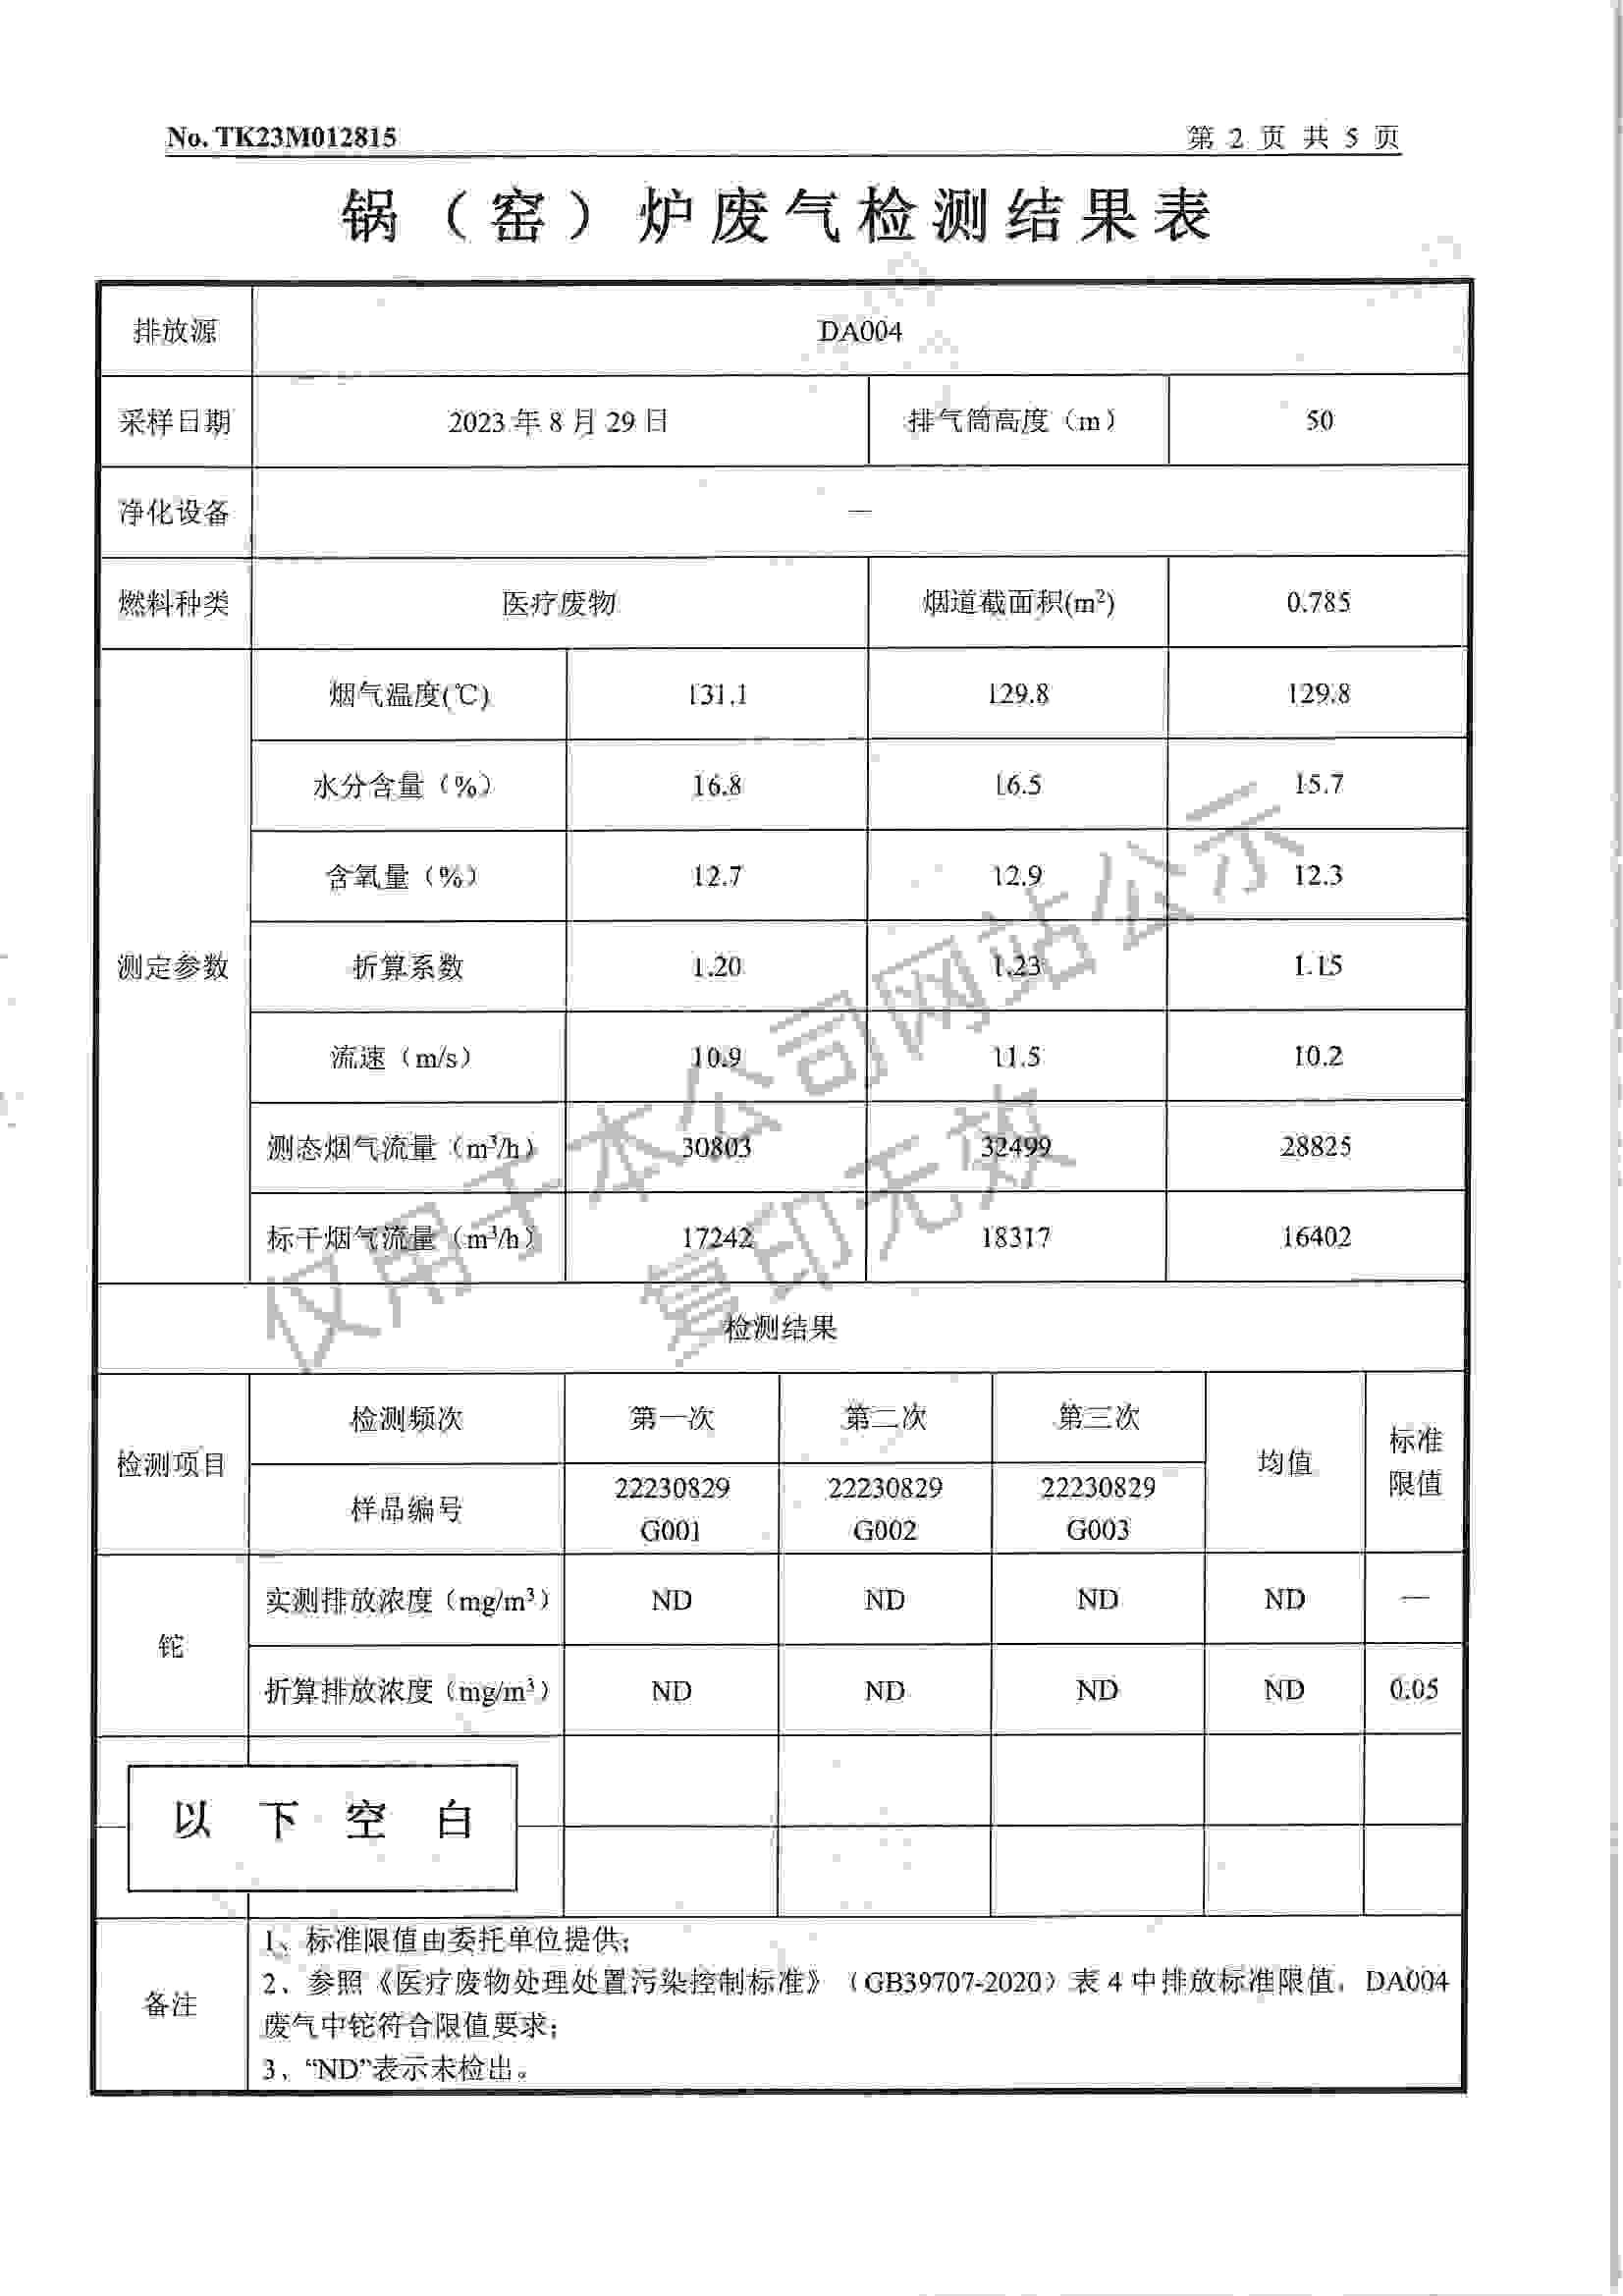 No. TK23M012815 第 2 页 共 5 页
锅（窑）炉废气检测结果表
排放源 DA004
采样日期 2023 年 8 月 29 日 排气筒高度（m） 50
净化设备 —
燃料种类 医疗废物 烟道截面积(m²) 0.785
测定参数
烟气温度(℃) 131.1 129.8 129.8
水分含量（%） 16.8 16.5 15.7
含氧量（%） 12.7 12.9 12.3
折算系数 1.20 1.23 1.15
流速（m/s） 10.9 11.5 10.2
测态烟气流量（m³/h） 30803 32499 28825
标干烟气流量（m³/h） 17242 18317 16402
仅用于本公司网站公示
复印无效
检测结果
检测项目 检测频次 第一次 第二次 第三次 均值 标准
限值
样品编号 22230829 22230829 22230829
G001 G002 G003
铊
实测排放浓度（mg/m³） ND ND ND ND —
折算排放浓度（mg/m³） ND ND ND ND 0.05
以 下 空 白
备注
1、标准限值由委托单位提供；
2、参照《医疗废物处理处置污染控制标准》（GB39707-2020）表 4 中排放标准限值，DA004
废气中铊符合限值要求；
3、“ND”表示未检出。